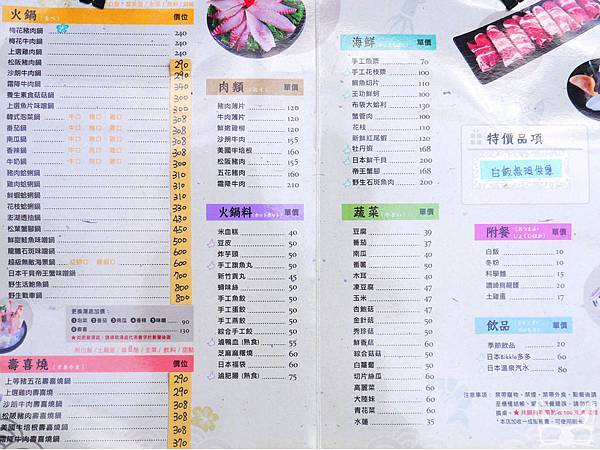 火鍋 價位
梅花豬肉鍋 240
梅花牛肉鍋 240
上選雞肉鍋 240
松阪豬肉鍋 290
沙朗牛肉鍋 290
霜降牛肉鍋
養生素食菇菇鍋 300
上選魚片味噌鍋 300
韓式泡菜鍋 牛□ 豬□ 雞□ 308
番茄鍋 牛□ 豬□ 雞□ 308
南瓜鍋 牛□ 豬□ 雞□ 308
香辣鍋 牛□ 豬□ 雞□ 308
牛奶鍋 牛□ 豬□ 雞□ 300
豬肉蛤蜊鍋 310
雞肉蛤蜊鍋 310
鮮蝦蛤蜊鍋 310
花枝蛤蜊鍋 330
澎湖透抽鍋 430
松葉蟹腳鍋 450
鮮甜鮭魚味噌鍋 500
龍膽石斑味噌鍋 600
超級無敵海景鍋 600
日本干貝帝王蟹味噌鍋 700
野生活鮑魚鍋 800
野生戰車鍋 800
更換湯底加價：
①泡菜 ②番茄 ③南瓜 ④香辣 ⑤味噌 90
⑥壽喜 130
壽喜燒 價位
上等豬五花壽喜燒鍋 290
上選雞肉壽喜燒鍋 290
沙朗牛肉壽喜燒鍋 308
松阪豬肉壽喜燒鍋 308
美國牛培根壽喜燒鍋 308
霜降牛肉壽喜燒鍋 370
肉類 單價
豬肉薄片 120
牛肉薄片 120
鮮嫩雞柳 120
沙朗牛肉 155
美國牛培根 160
松阪豬肉 155
五花豬肉 160
霜降牛肉 210
火鍋料 單價
米血糕 40
豆皮 50
炸芋頭 50
手工旗魚丸 50
新竹貢丸 45
蟳味絲 50
手工魚餃 50
手工蛋餃 50
手工燕餃 50
綜合手工餃 50
滷鴨血 (熟食) 55
芝麻麻糬燒 50
日本福袋 60
滷肥腸 (熟食) 75
海鮮 單價
手工魚漿 70
手工花枝漿 100
鯛魚切片 110
王功鮮蚵 100
布袋大蛤蜊 150
蟹管肉 100
花枝 110
新鮮紅尾蝦 160
牡丹蝦 168
日本鮮干貝 200
帝王蟹腳 168
野生石斑魚肉 200
蔬菜 單價
豆腐 39
番茄 37
南瓜 40
番薯 40
木耳 40
凍豆腐 45
玉米 47
杏鮑菇 40
金針菇 50
秀珍菇 50
鮮香菇 50
綜合菇菇 50
白蘿蔔 50
切片絲瓜 60
高麗菜 60
大陸妹 60
青花菜 60
水蓮 35
特價品項
附餐 單價
白飯 10
冬粉 20
科學麵 15
讚岐烏龍麵 20
土雞蛋 17
飲品 單價
季節飲品 20
日本Bikkle多多 60
日本溫泉汽水 80